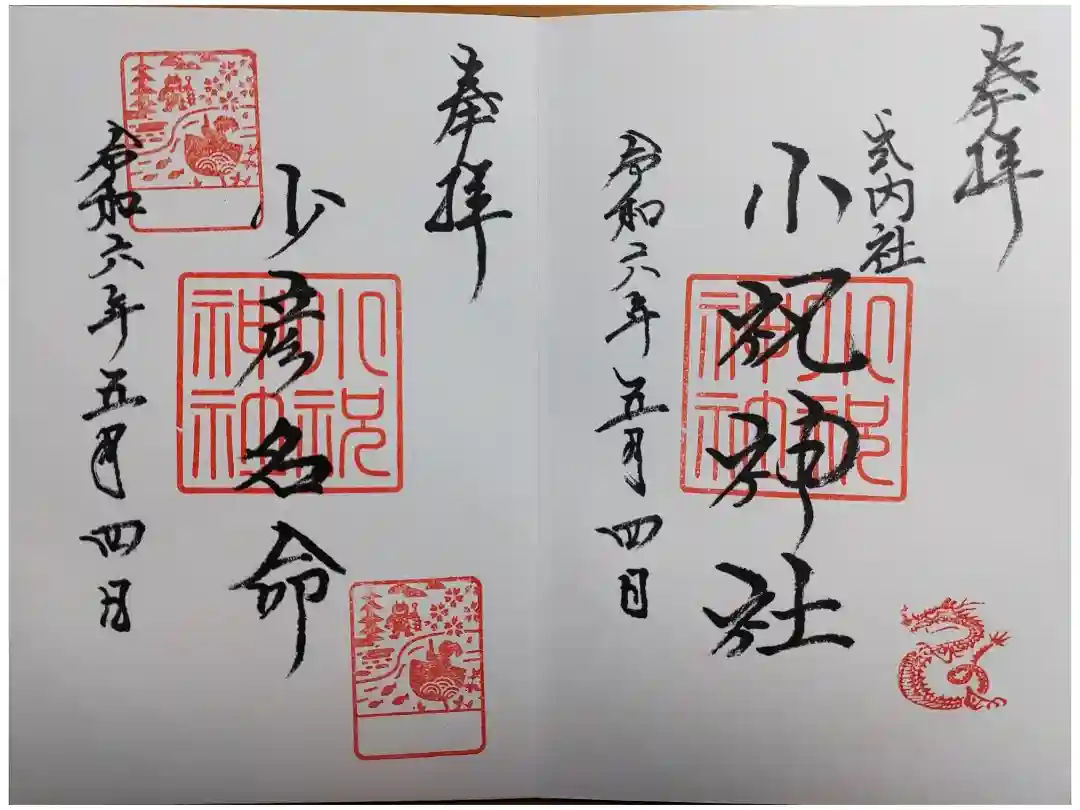 奉拝
式内社
小祝神社
小祝神社
令和六年五月四日
奉拝
少彦名命
小祝神社
令和六年五月四日